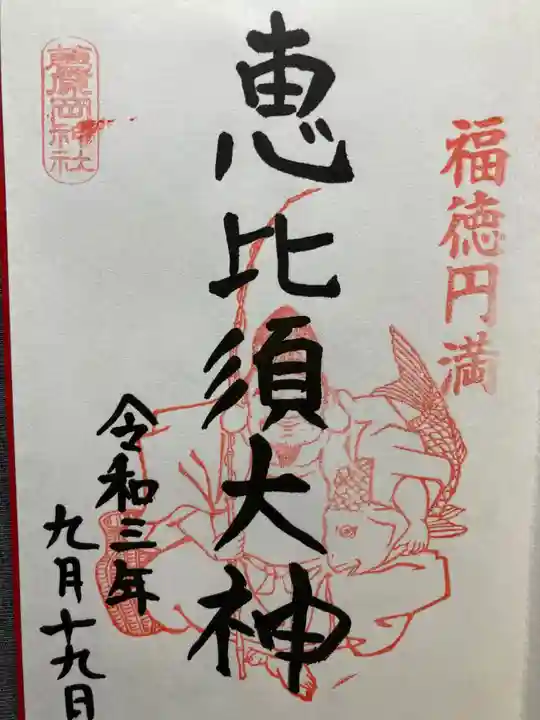 福徳円満
恵比須大神
令和三年
九月十九日